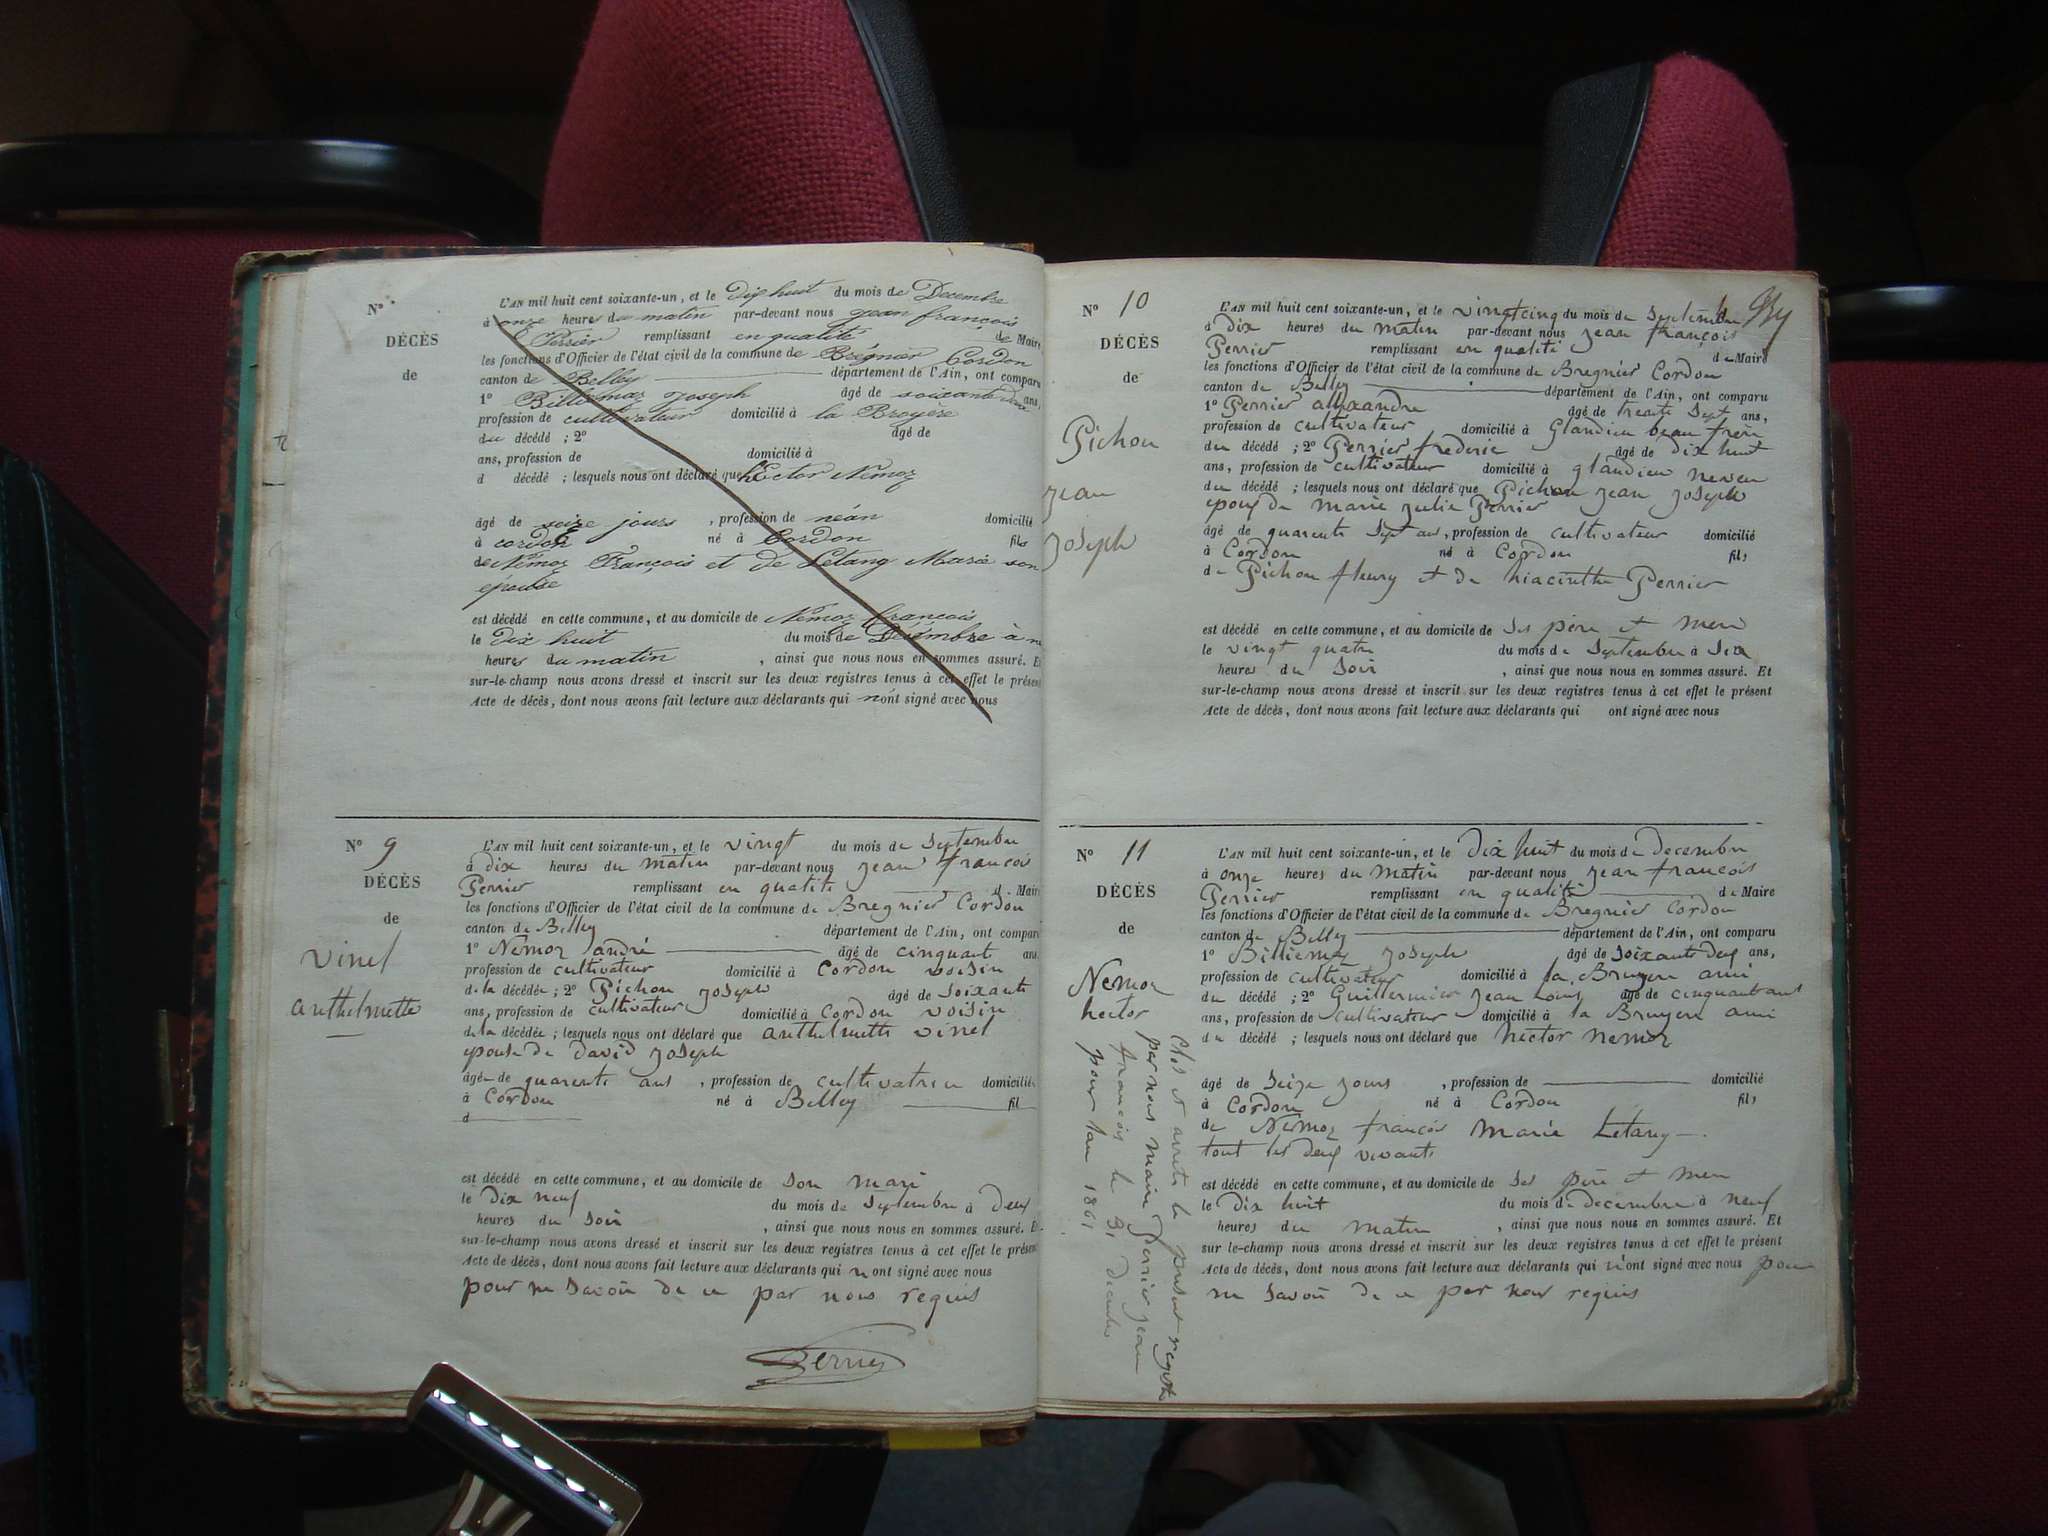 N°
DÉCÈS
de
L'AN mil huit cent soixante-un, et le Dix huit du mois de Decembre
à onze heures du matin par-devant nous jean françois
Perrier remplissant en qualité de Maire
les fonctions d'Officier de l'état civil de la commune de Brégnier Cordon
canton de Belley département de l'Ain, ont comparu
1° Billiemaz Joseph âgé de soixante deux ans,
profession de cultivateur domicilié à la Broyère
du décédé ; 2° âgé de
ans, profession de domicilié à
d décédé ; lesquels nous ont déclaré que hEctor Némoz
âgé de seize jours , profession de néán domicilié
à cordon né à Cordon fils
de Némoz François et de Létang Marie son
épouse
est décédé en cette commune, et au domicile de Némoz françois
le Dix huit du mois de Décembre à ne
heures du matin , ainsi que nous nous en sommes assuré. Et
sur-le-champ nous avons dressé et inscrit sur les deux registres tenus à cet effet le présent
Acte de décès, dont nous avons fait lecture aux déclarants qui n'ont signé avec nous
N° 9
DÉCÈS
de
vinel
anthelmette
L'AN mil huit cent soixante-un, et le vingt du mois de septembre
à dix heures du matin par-devant nous jean francois
Perrier remplissant en qualité d. Maire
les fonctions d'Officier de l'état civil de la commune de Bregnier Cordon
canton de Belley département de l'Ain, ont comparu
1° Némoz andré âgé de cinquant ans
profession de cultivateur domicilié à Cordon voisin
de la décédée ; 2° Pichon joseph âgé de soixante
ans, profession de cultivateur domicilié à Cordon voisin
de la décédée ; lesquels nous ont déclaré que anthelmette vinel
epouse de david joseph
âgée de quarente ans , profession de cultivatrice domicilié
à Cordon né à Belley fil
d
est décédé en cette commune, et au domicile de son mari
le dix neuf du mois de septembre à deux
heures du soir , ainsi que nous nous en sommes assuré. E
sur-le-champ nous avons dressé et inscrit sur les deux registres tenus à cet effet le présent
Acte de décès, dont nous avons fait lecture aux déclarants qui n ont signé avec nous
pour ne savoir de ce par nous requis
Perrier
N° 10
DÉCÈS
de
Pichon
jean
joseph
L'AN mil huit cent soixante-un, et le vingtcinq du mois de septembre
à dix heures du matin par-devant nous jean françois
Perrier remplissant en qualité de Maire
les fonctions d'Officier de l'état civil de la commune de Bregnier Cordon
canton de Belley département de l'Ain, ont comparu
1° Perrier allexandre âgé de trente sept ans,
profession de cultivateur domicilié à Glandieu beau frère
du décédé ; 2° Perrier frederic âgé de dix huit
ans, profession de cultivateur domicilié à glandieu neveu
du décédé ; lesquels nous ont déclaré que Pichon jean joseph
epoux de marie julie Perrier
âgé de quarente sept ans, profession de cultivateur domicilié
à Cordon né à Cordon fils
de Pichon fleury et de hiacinthe Perrier
est décédé en cette commune, et au domicile de ses père et mere
le vingt quatre du mois de septembre à six
heures du soir , ainsi que nous nous en sommes assuré. Et
sur-le-champ nous avons dressé et inscrit sur les deux registres tenus à cet effet le présent
Acte de décès, dont nous avons fait lecture aux déclarants qui ont signé avec nous
N° 11
DÉCÈS
de
Nemoz
hector
Clos et arrete le present registre
par nous maire Perrier jean
francois le 31 decembre
pour l'an 1861
L'AN mil huit cent soixante-un, et le dix huit du mois de decembre
à onze heures du matin par-devant nous jean francois
Perrier remplissant en qualité de Maire
les fonctions d'Officier de l'état civil de la commune de Bregnier Cordon
canton de Belley département de l'Ain, ont comparu
1° Billiemaz joseph âgé de soixante deux ans,
profession de cultivateur domicilié à la Bruyere ami
du décédé ; 2° Guillermier jean Louis âgé de cinquant ans
ans, profession de cultivateur domicilié à la Bruyere ami
du décédé ; lesquels nous ont déclaré que hector nemoz
âgé de seize jours , profession de domicilié
à Cordon né à Cordon fils
de Nemoz francois marie Letang
tout les deux vivants
est décédé en cette commune, et au domicile de ses père et mere
le dix huit du mois de decembre à neuf
heures du matin , ainsi que nous nous en sommes assuré. Et
sur le-champ nous avons dressé et inscrit sur les deux registres tenus à cet effet le présent
Acte de décès, dont nous avons fait lecture aux déclarants qui n'ont signé avec nous pour
ne savoir de ce par nous requis